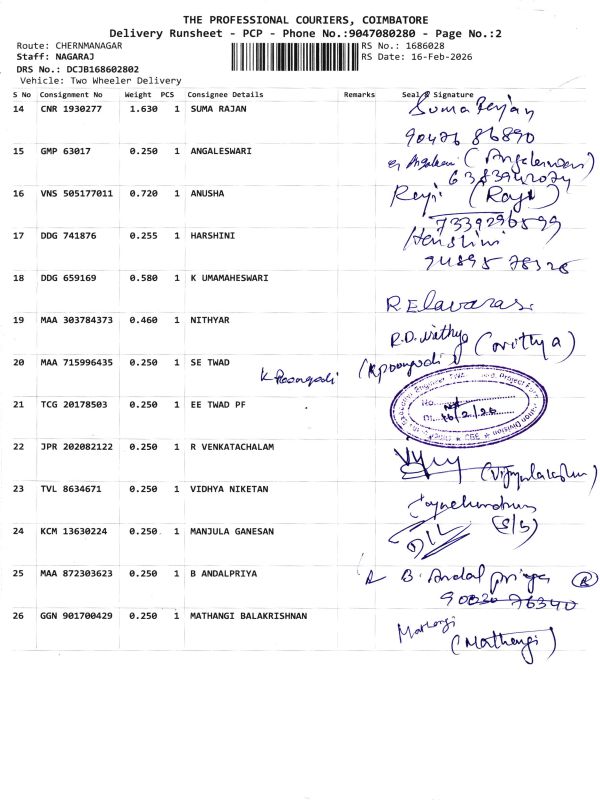 THE PROFESSIONAL COURIERS, COIMBATORE
Delivery Runsheet - PCP - Phone No.:9047080280 - Page No.:2
Route: CHERNMANAGAR RS No.: 1686028
Staff: NAGARAJ RS Date: 16-Feb-2026
DRS No.: DCJB168602802
Vehicle: Two Wheeler Delivery
S No Consignment No Weight PCS Consignee Details Remarks Seal & Signature
14 CNR 1930277 1.630 1 SUMA RAJAN Suma Rejan
90476 86890
15 GMP 63017 0.250 1 ANGALESWARI
6383942074
16 VNS 505177011 0.720 1 ANUSHA
7339296599
17 DDG 741876 0.255 1 HARSHINI Harshini
94895 78326
18 DDG 659169 0.580 1 K UMAMAHESWARI R. Elavarasi
19 MAA 303784373 0.460 1 NITHYAR R.D. Nithya (Nithya)
20 MAA 715996435 0.250 1 SE TWAD K Poongodi (K poongodi)
21 TCG 20178503 0.250 1 EE TWAD PF
No.
Dt. 16/2/26
22 JPR 202082122 0.250 1 R VENKATACHALAM
23 TVL 8634671 0.250 1 VIDHYA NIKETAN
24 KCM 13630224 0.250 1 MANJULA GANESAN
25 MAA 872303623 0.250 1 B ANDALPRIYA B. Andal priya
90020 76340
26 GGN 901700429 0.250 1 MATHANGI BALAKRISHNAN Mathangi
(Mathangi)